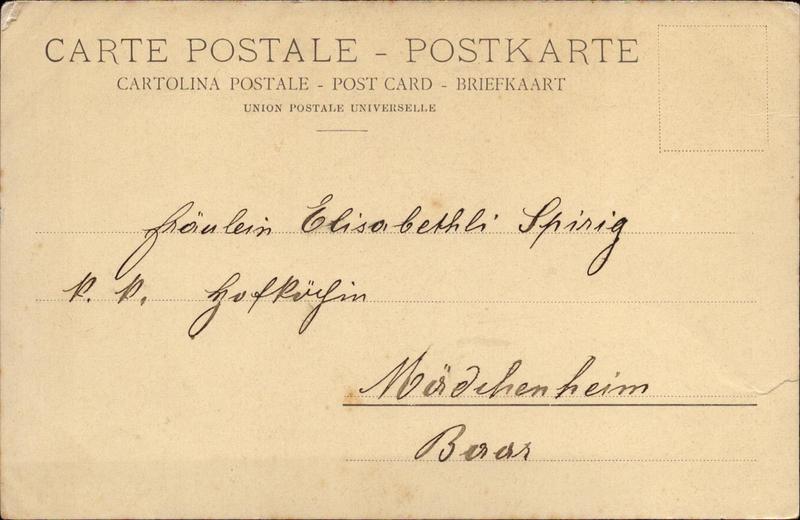 CARTE POSTALE - POSTKARTE
CARTOLINA POSTALE - POST CARD - BRIEFKAART
UNION POSTALE UNIVERSELLE
Fräulein Elisabethli Spirig
k. k. Hofköchin
Mädchenheim
Baar